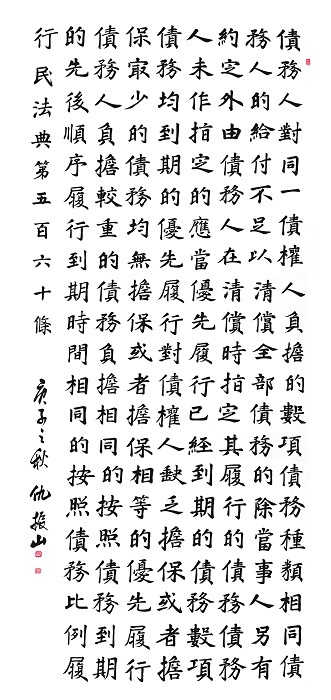 債務人對同一債權人負擔的數項債務種類相同債
務人的給付不足以清償全部債務的除當事人另有
約定外由債務人在清償時指定其履行的債務債務
人未作指定的應當優先履行已經到期的債務數項
債務均到期的優先履行對債權人缺乏擔保或者擔
保最少的債務均無擔保或者擔保相等的優先履行
債務人負擔較重的債務負擔相同的按照債務到期
的先後順序履行到期時間相同的按照債務比例履
行 民法典第五百六十條 庚子之秋 仇振山